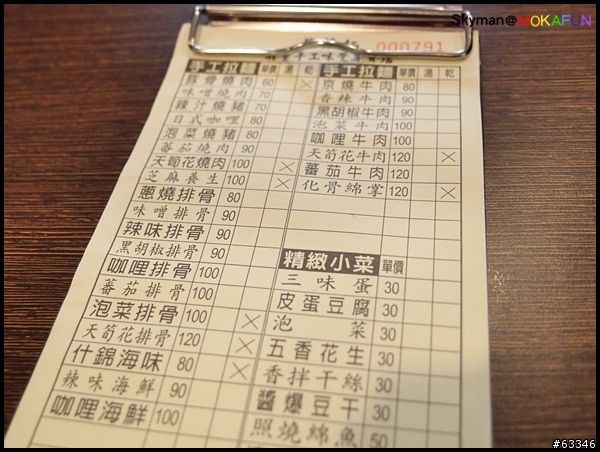 Skyman@MOKAFUN
000791
手工拉麵 單價 湯 乾
豚骨燒肉 60
味噌燒肉 70
辣汁燒豬 70
日式咖哩 80
泡菜燒豬 80
蕃茄燒肉 90
天荀花燒肉 100
芝麻養生 100
蔥燒排骨 80
味噌排骨 90
辣味排骨 90
黑胡椒排骨 90
咖哩排骨 100
蕃茄排骨 100
泡菜排骨 100
天荀花排骨 120
什錦海味 80
辣味海鮮 90
咖哩海鮮 100
手工拉麵 單價 湯 乾
京燒牛肉 80
香辣牛肉 90
黑胡椒牛肉 90
泡菜牛肉 100
咖哩牛肉 100
天荀花牛肉 120
蕃茄牛肉 120
化骨綿掌 120
精緻小菜 單價
三味蛋 30
皮蛋豆腐 30
泡菜 30
五香花生 30
香拌干絲 30
醬爆豆干 30
照燒綿魚 50
#63346